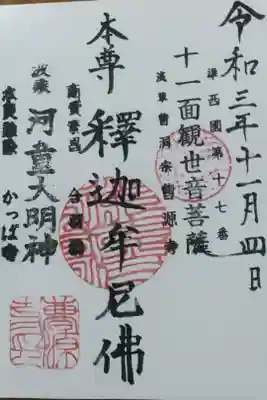 令和三年十一月四日
準西國第十七番
十一面観世音菩薩
浅草曹洞宗曹源寺
本尊 釋迦牟尼佛
商賣繁昌
波乗 河童大明神
かっぱ寺